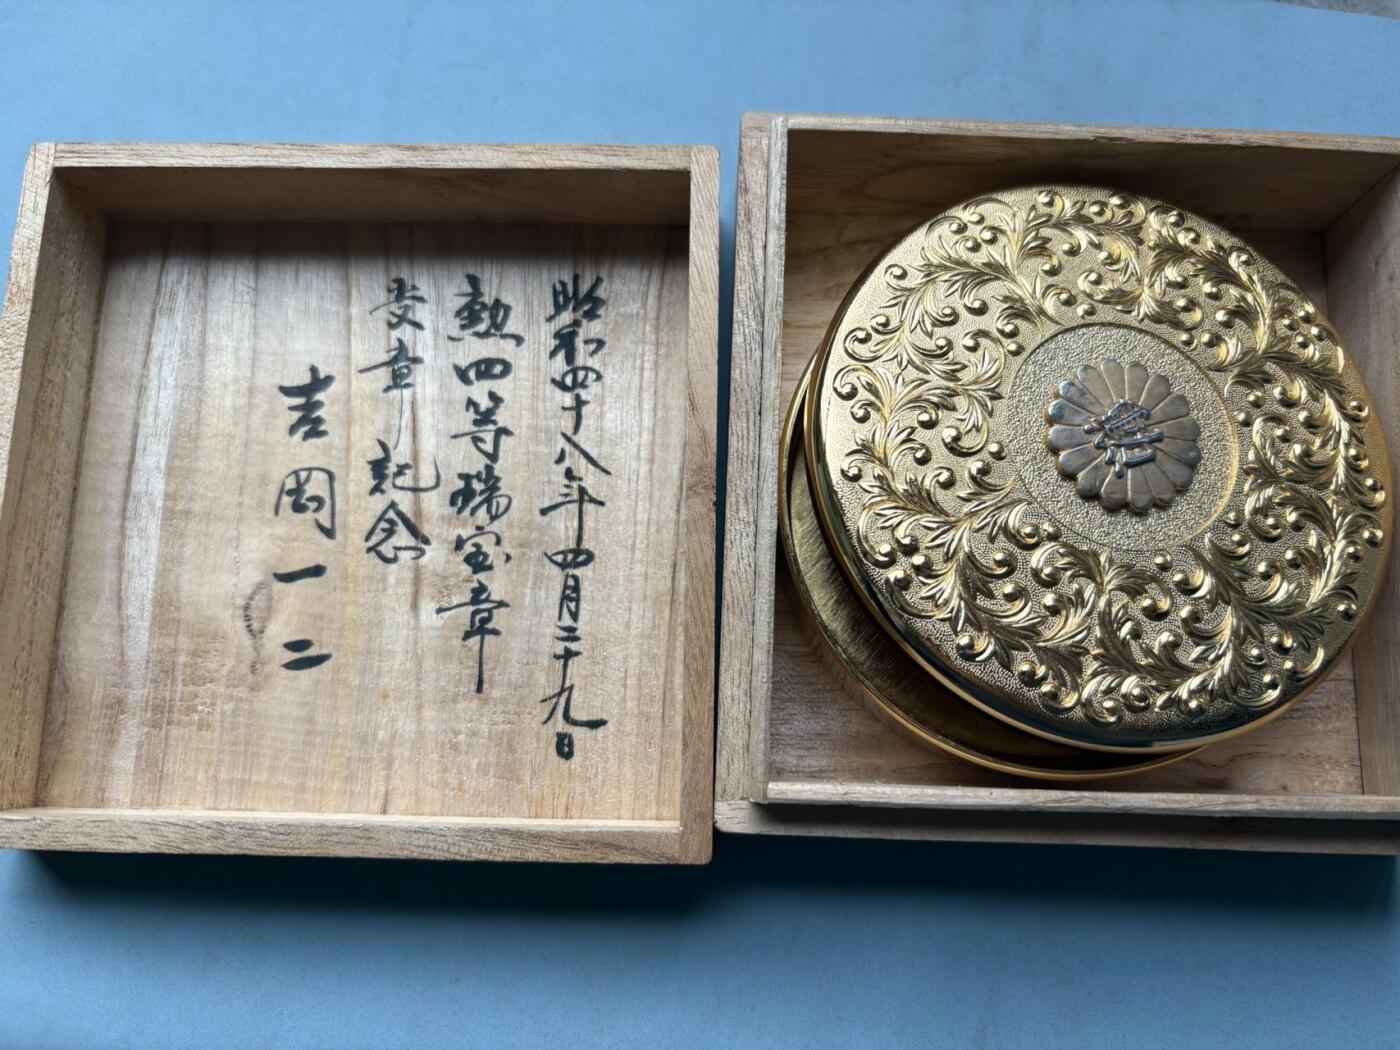 昭和四十八年四月二十九日
勲四等瑞宝章
受章記念
吉岡一二